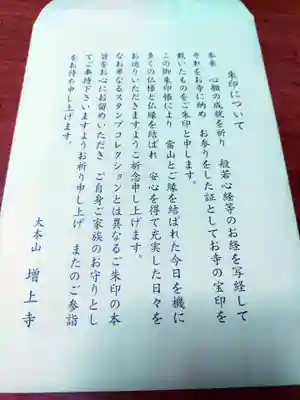 朱印について
本来 心願の成就を祈り 般若心経等のお経を写経して
それをお寺に納め お参りをした証としてお寺の宝印を
戴いたものをご朱印と申します。
この御朱印帳により 当山とご縁を結ばれた今日を機に
多くの仏様と仏縁を結ばれ 安心を得て充実した日々を
お送りいただきますようご祈念申し上げます。
なお単なるスタンプコレクションとは異なるご朱印の本
旨をお心にお留めいただき ご自身ご家族のお守りとし
てご奉持下さいますようお祈り申し上げ またのご参詣
をお待ち申し上げます。
大本山 増上寺